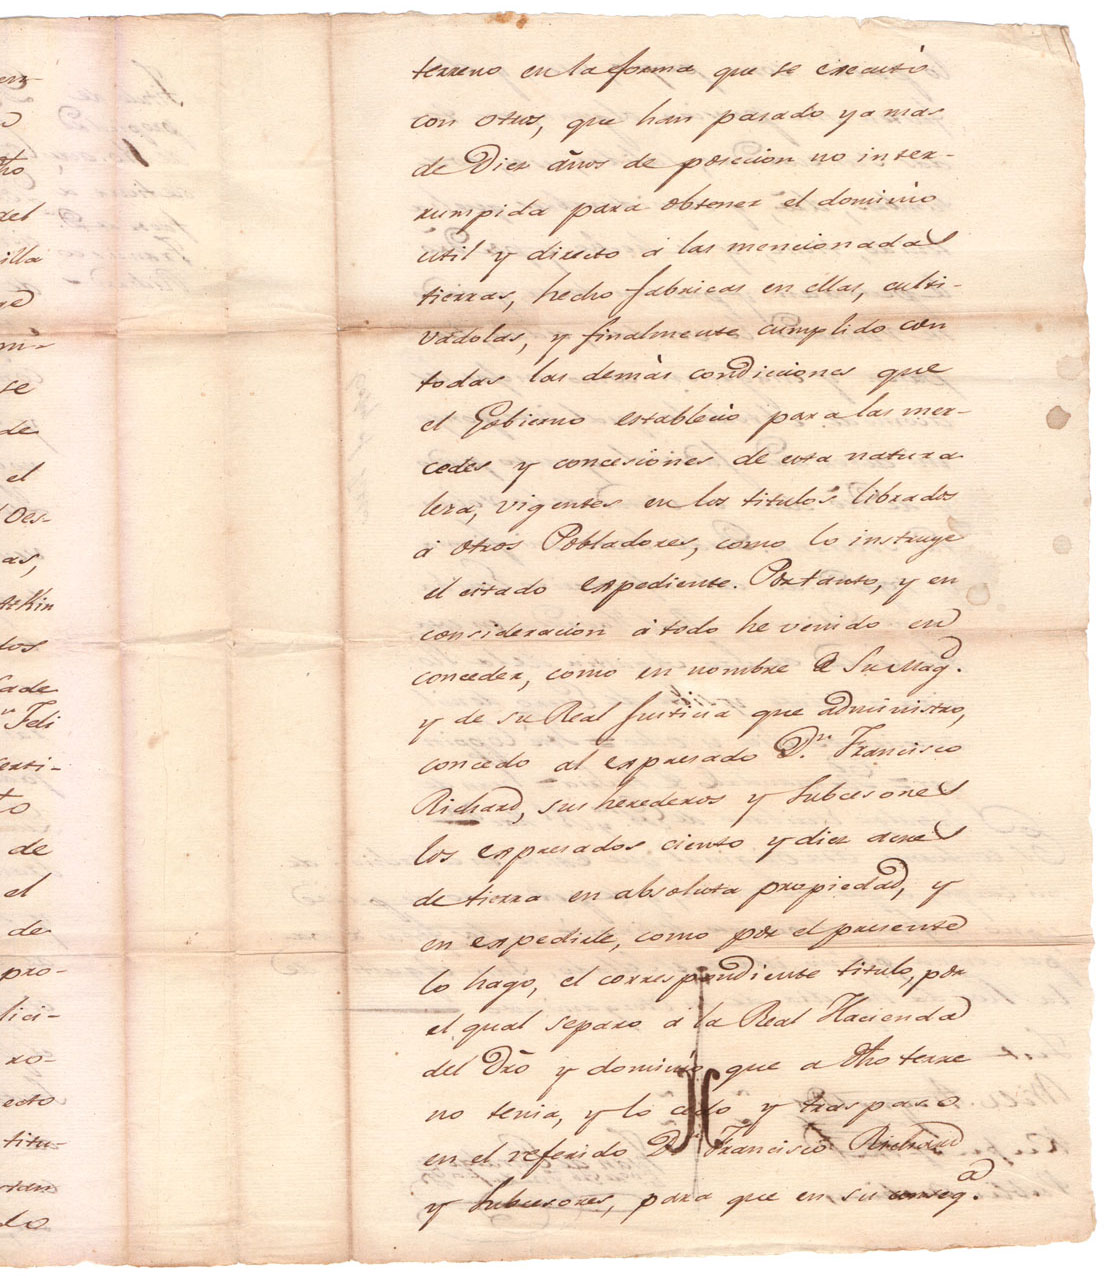 terreno en la forma que se executó
con otros, que han pasado ya mas
de Diez años de posecion no inter-
rumpida para obtener el dominio
util y directo á las mencionadas
tierras, hecho fabricas en ellas, culti-
vadolas, y finalmente cumplido con
todas las demás condiciones que
el Gobierno establecio para las mer-
cedes y concesiones de esta natura
leza, vigentes en los titulos librados
á otros Pobladores, como lo instruye
el citado expediente. Portanto, y en
consideracion á todo he venido en
conceder, como en nombre de Su Magd.
y de su Real Justicia que administro,
concedo al expresado Dn. Francisco
Richard, sus herederos y subcesores
los expresados ciento y diez acres
de tierra en absoluta propiedad, y
en expedirle, como por el presente
lo hago, el correspondiente titulo, por
el qual separo á la Real Hacienda
del Dro y dominio que a dho terre
no tenia, y lo cedo y traspaso
en el referido Dn Francisco Richard
y subcesores, para que en su conseqa.
illa
del
mi-
se
de
el
as,
de
el
de
pro-
lici-
ro-
ecto
titu-